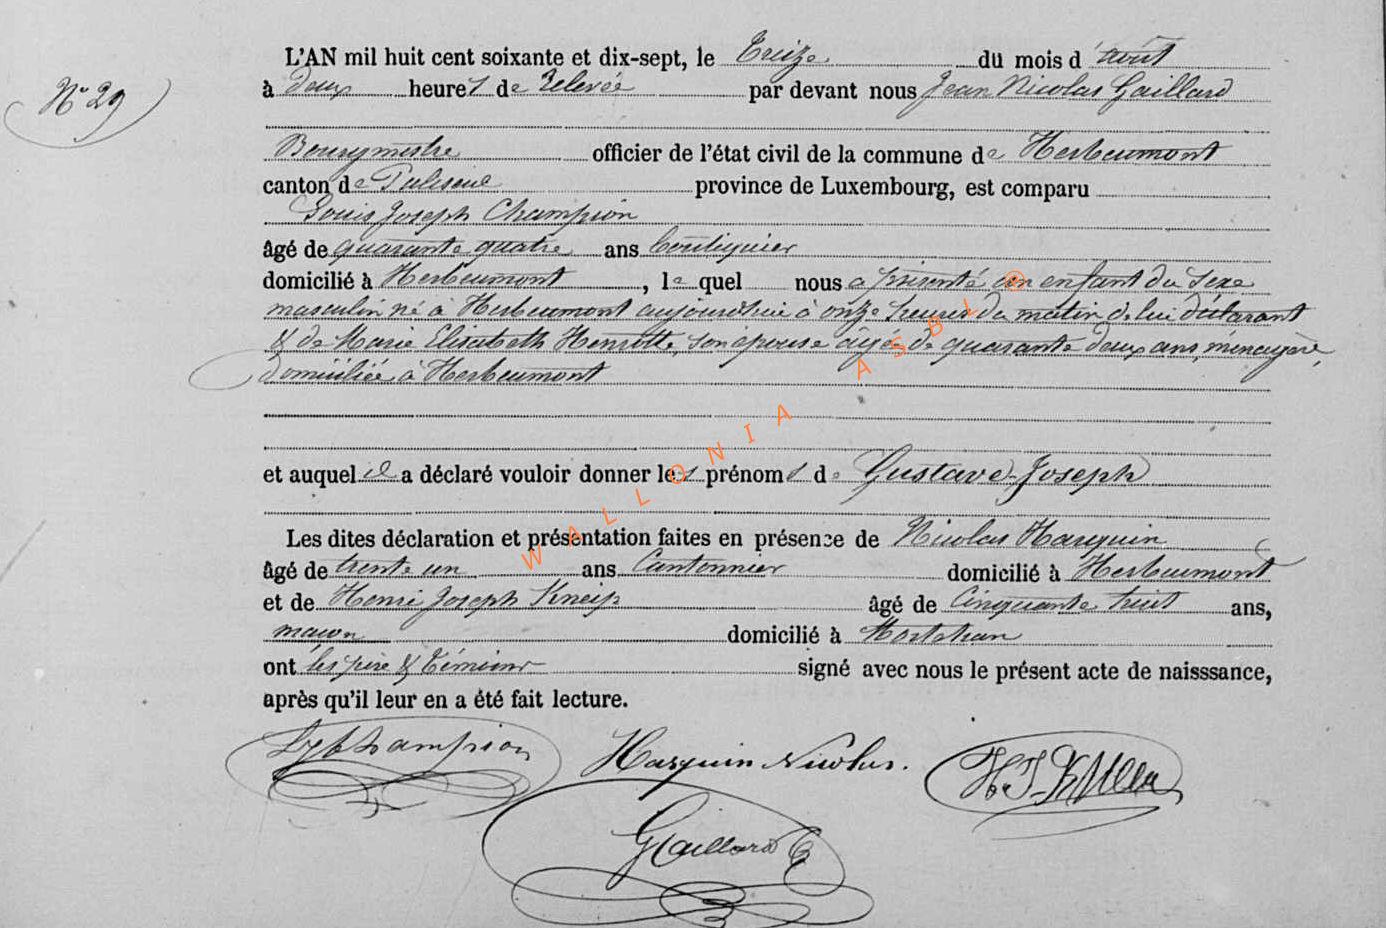 L'AN mil huit cent soixante et dix-sept, le Treize du mois d'août
N° 29
à deux heures de Relevée par devant nous Jean Nicolas Gaillard
Bourgmestre officier de l'état civil de la commune de Herbeumont
canton de Paliseul province de Luxembourg, est comparu
Louis Joseph Champion
âgé de quarante quatre ans boutiquier
domicilié à Herbeumont, le quel nous a présenté un enfant du sexe
masculin né à Herbeumont aujourd'hui à onze heures du matin de lui déclarant
& de Marie Elisabeth Henrotte, son épouse âgée de quarante deux ans, ménagère,
domiciliée à Herbeumont
et auquel il a déclaré vouloir donner les prénoms de Gustave-Joseph
Les dites déclaration et présentation faites en présence de Nicolas Harquin
âgé de trente un ans Cantonnier domicilié à Herbeumont
et de Henri Joseph Kneip âgé de Cinquante huit ans,
maçon domicilié à Mortehan
ont les père & témoins signé avec nous le présent acte de naisssance,
après qu'il leur en a été fait lecture.
Champion Harquin Nicolas. H. J.
Gaillard
WALLONIA ASBL ®